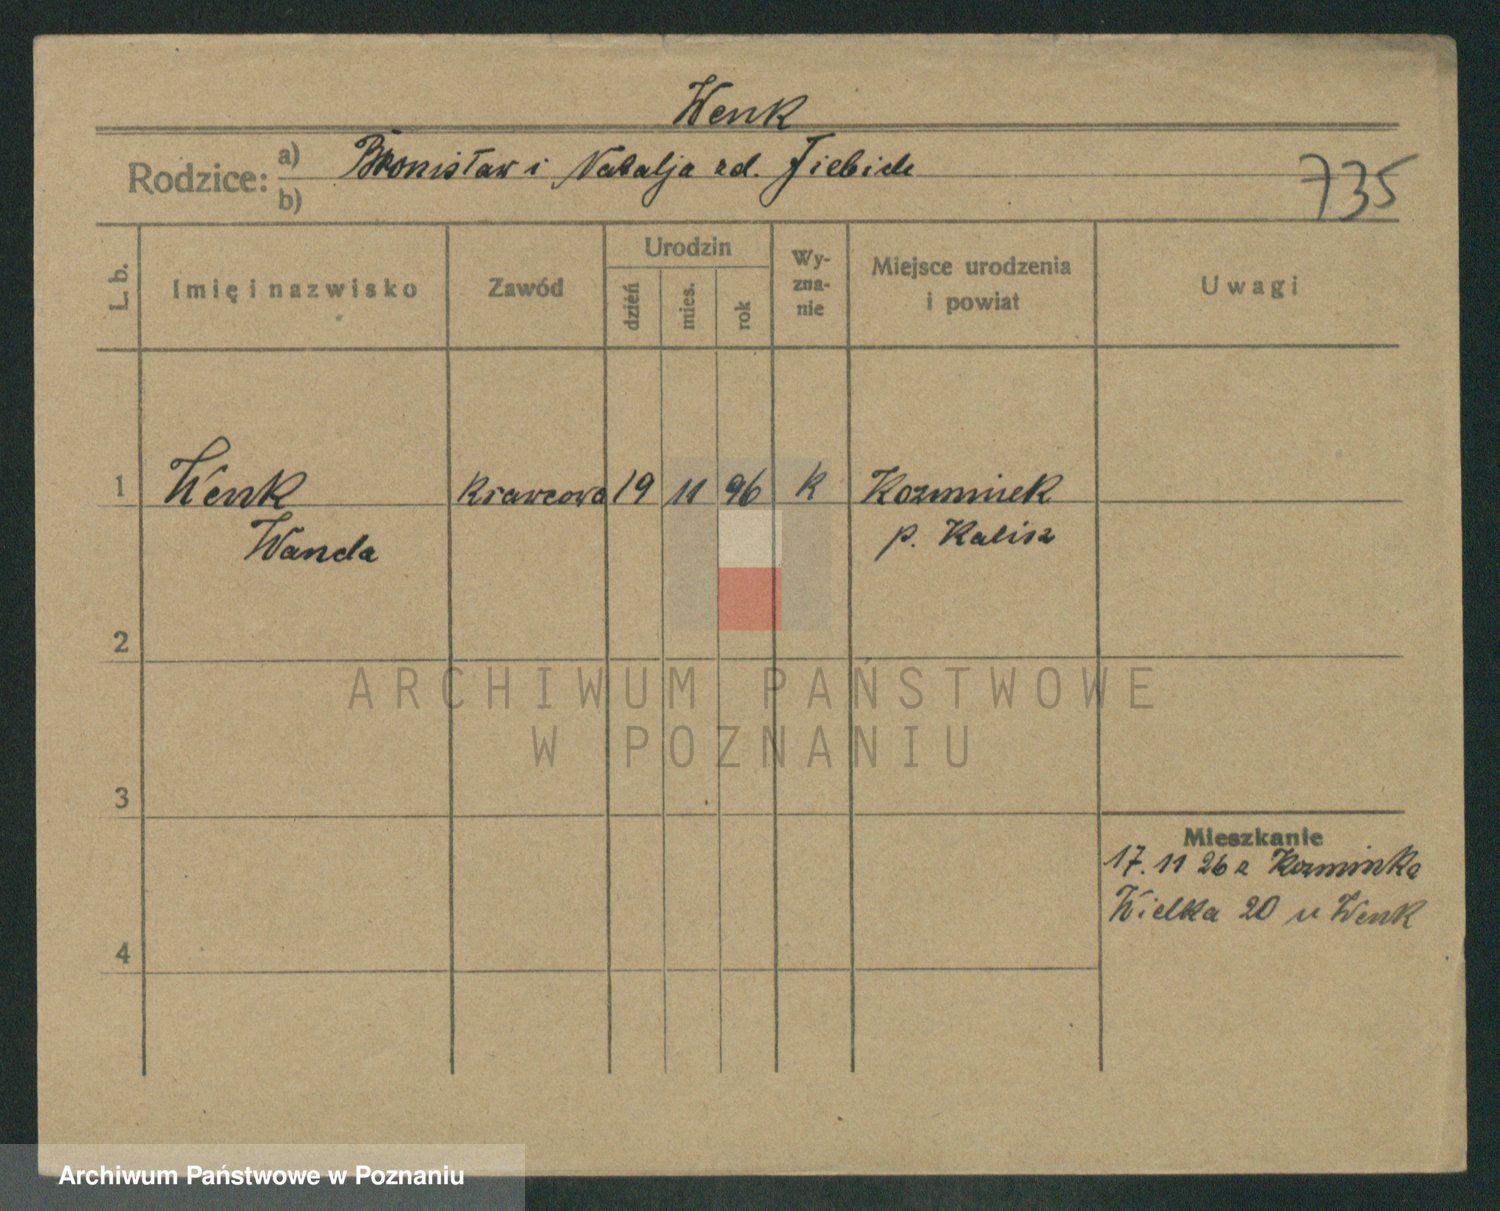 Wenk
Rodzice: a) Bronisław i Natalja zd.
b)
735
L. b.
Imię i nazwisko
Zawód
Urodzin
dzień
mies.
rok
Wy-
zna-
nie
Miejsce urodzenia
i powiat
Uwagi
1 Wenk Krawcowa 19 11 96 K Kozminek
Wanda p. Kalisz
2
3
4
Mieszkanie
17. 11 26 z Kozminka
Wielka 20 u Wenk
ARCHIWUM PAŃSTWOWE
W POZNANIU
Archiwum Państwowe w Poznaniu